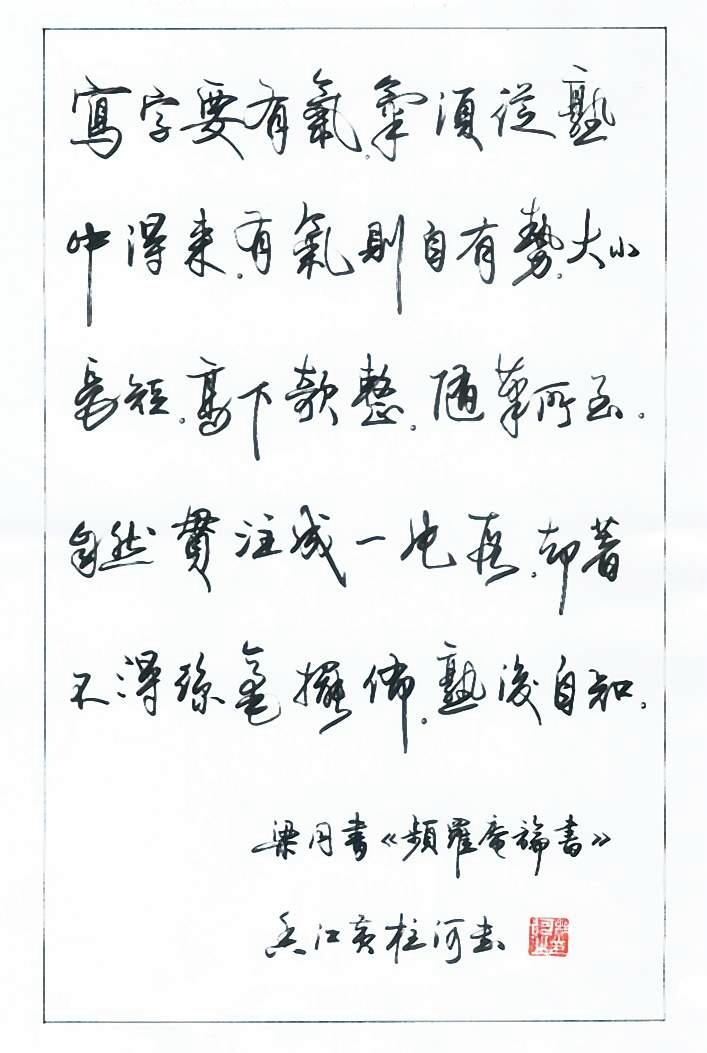 寫字要有氣。氣須從熟
中得來。有氣則自有勢。大小
長短。高下欹整。隨筆所至。
自然貫注成一片段。却著
不得絲毫擺佈。熟後自知。
梁同書《頻羅庵論書》
香江黃柱河書